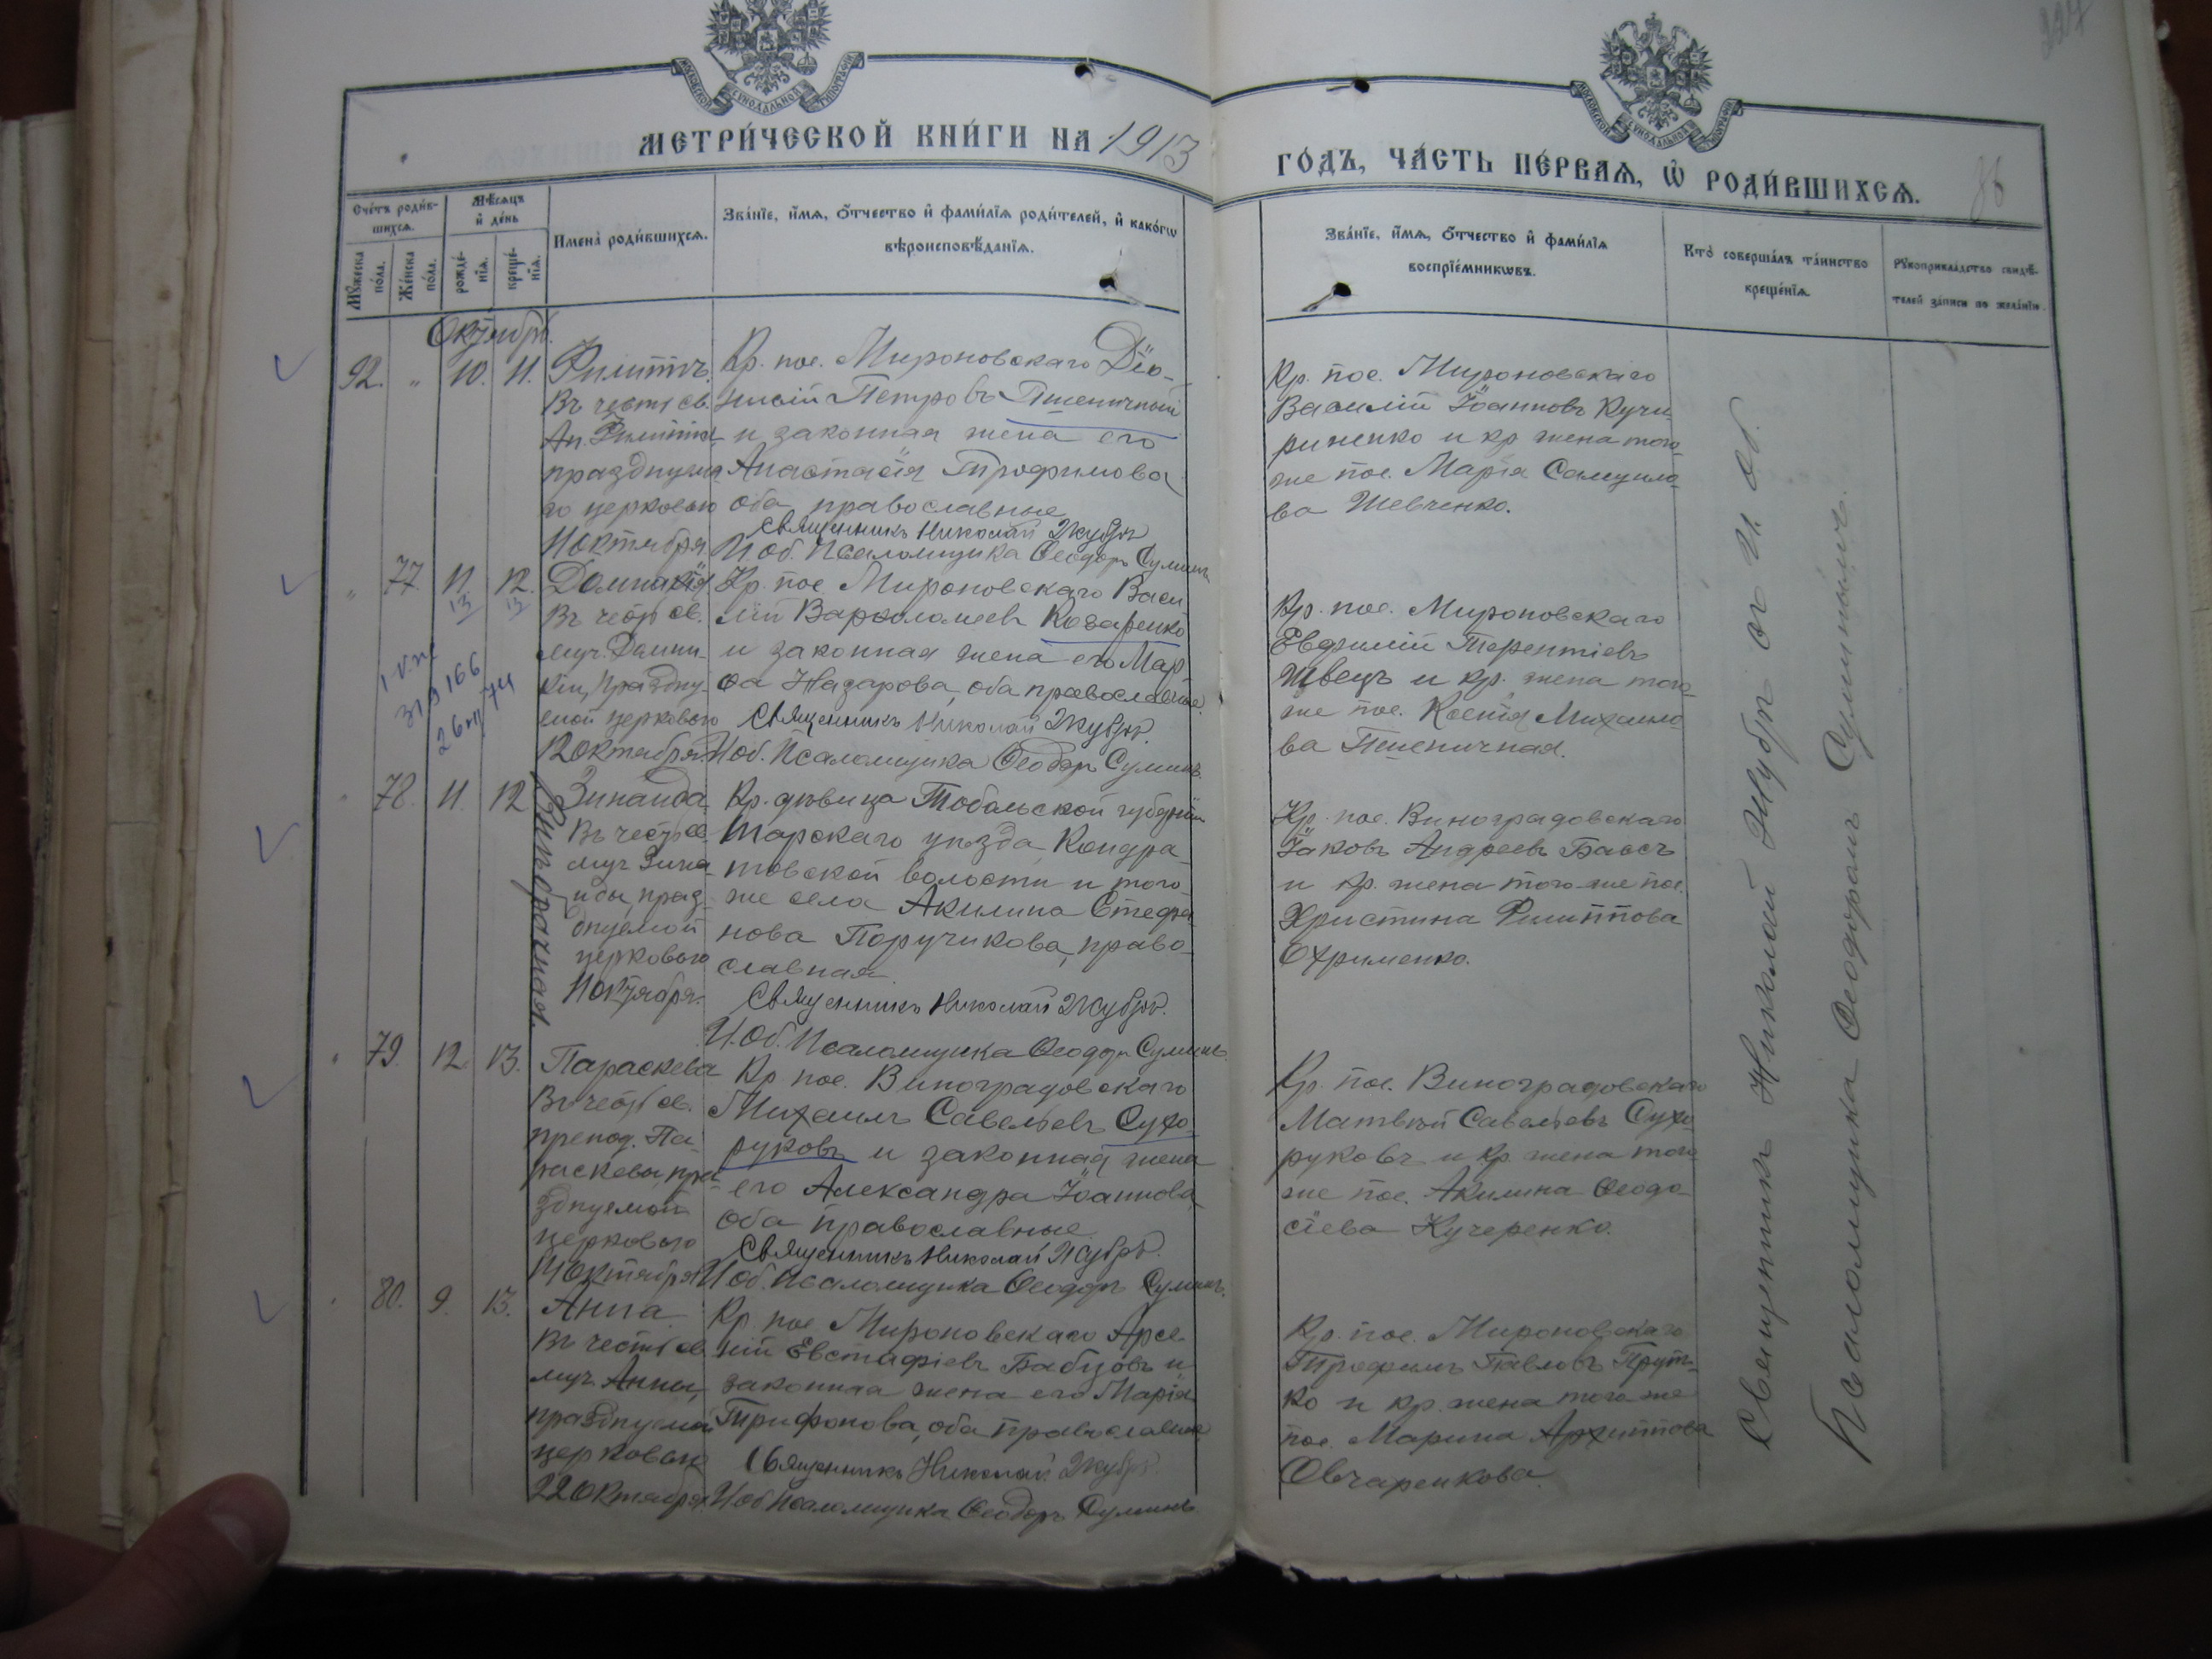 МЕТРИ́ЧЕСКОЙ КНИ́ГИ НА 1913
ГО́ДЪ, ЧА́СТЬ ПЕ́РВАѦ, Ѡ҆ РОДИ́ВШИХСѦ.
227
86
МОСКОВСКОЙ СѴНОДАЛЬНОЙ ТИПОГРАФІИ
МОСКОВСКОЙ СѴНОДАЛЬНОЙ ТИПОГРАФІИ
Сче́тъ роди́в-
шихсѧ.
Мѣ́сѧцъ
и҆ де́нь
Му́жеска
по́ла.
Же́нска
по́ла.
рожде́-
нїѧ.
креще́-
нїѧ.
И҆мена̀ роди́вшихсѧ.
Зва́нїе, и҆́мѧ, ѻ҆́тчество и҆ фами́лїѧ роди́телей, и҆ како́гѡ
вѣроисповѣ́данїѧ.
Зва́нїе, и҆́мѧ, ѻ҆́тчество и҆ фами́лїѧ
воспрїе́мникѡвъ.
Кто̀ соверша́лъ та́инство
креще́нїѧ.
Рꙋкоприкла́дство свидѣ́-
телей за́писи по жела́нїю.
Октябрь.
92. " 10. 11.
Филиппъ.
Въ честь св.
Ап. Филиппа
празднуема
го церковью
11 октября
Кр. пос. Мироновскаго Діо-
нисій Петровъ Пшеничный
и законная жена его
Анастасія Трофимова
оба православные
Священникъ Николай Жубръ
И об. Псаломщика Ѳеодоръ Сулимъ
Кр. пос. Мироновскаго
Василій Іоанновъ Кучи-
риненко и кр жена того-
же пос. Марія Самуило-
ва Шевченко.
" 77. 11. 12.
13 13
Домникія
Въ честь св.
муч. Домни-
кіи, праздну-
емой церковью
12 октября.
Кр. пос. Мироновскаго Васи
лій Варѳоломеевъ Козаренко
и законная жена его Мар-
ѳа Назарова, оба православные.
Священникъ Николай Жубръ.
И об. Псаломщика Ѳеодоръ Сулимъ.
Кр. пос. Мироповскаго
Евфимій Терентіевъ
Швецъ и кр. жена того-
же пос. Ксенія Михаило-
ва Пшеничная.
319166
26 74
" 78. 11. 12
Зинаида.
Въ честь св.
муч Зина-
иды, праз-
днуемой
церковью
11 октября.
Внѣбрачная.
Кр. дѣвица Тобольской губерніи
Тарскаго уѣзда, Кондра-
товской волости и того-
же села Акилина Стефа-
нова Поручикова, право-
славная
Священникъ Николай Жубръ.
И. Об. Псаломщика Ѳеодоръ Сулимъ.
Кр. пос. Виноградовскаго
Іаковъ Андреевъ Баасъ
и кр. жена того-же пос.
Христина Филиппова
Охрименко.
" 79. 12. 13.
Параскева
Въ честь св.
препод. Па-
раскевы, пра
зднуемой
церковью
14 октября
Кр пос. Виноградовскаго
Михаилъ Савельевъ Сухо-
руковъ и законная жена
его Александра Іоаннова,
оба православные
Священникъ Николай Жубръ.
И об. Псаломщика Ѳеодоръ Сулимъ.
Кр. пос. Виноградовскаго
Матвѣй Савельевъ Сухо-
руковъ и кр. жена того
же пос. Акилина Ѳеодо-
сіева Кучеренко.
" 80. 9. 13.
Анна
Въ честь св
муч Анны,
празднуемой
церковью
22 октября.
Кр. пос Мироновскаго Арсе-
ній Евстафіевъ Бабцовъ и
законная жена его Марія
Трифонова, оба православные
Священникъ Николай Жубръ
И об Псаломщика Ѳеодоръ Сулимъ
Кр. пос. Мироновскаго
Трофимъ Павловъ Прут-
ко и кр. жена того же
пос. Марина Архиппова
Овчаренкова.
Священникъ Николай Жубръ съ И. об.
Псаломщика Ѳеодоромъ Сулимомъ.